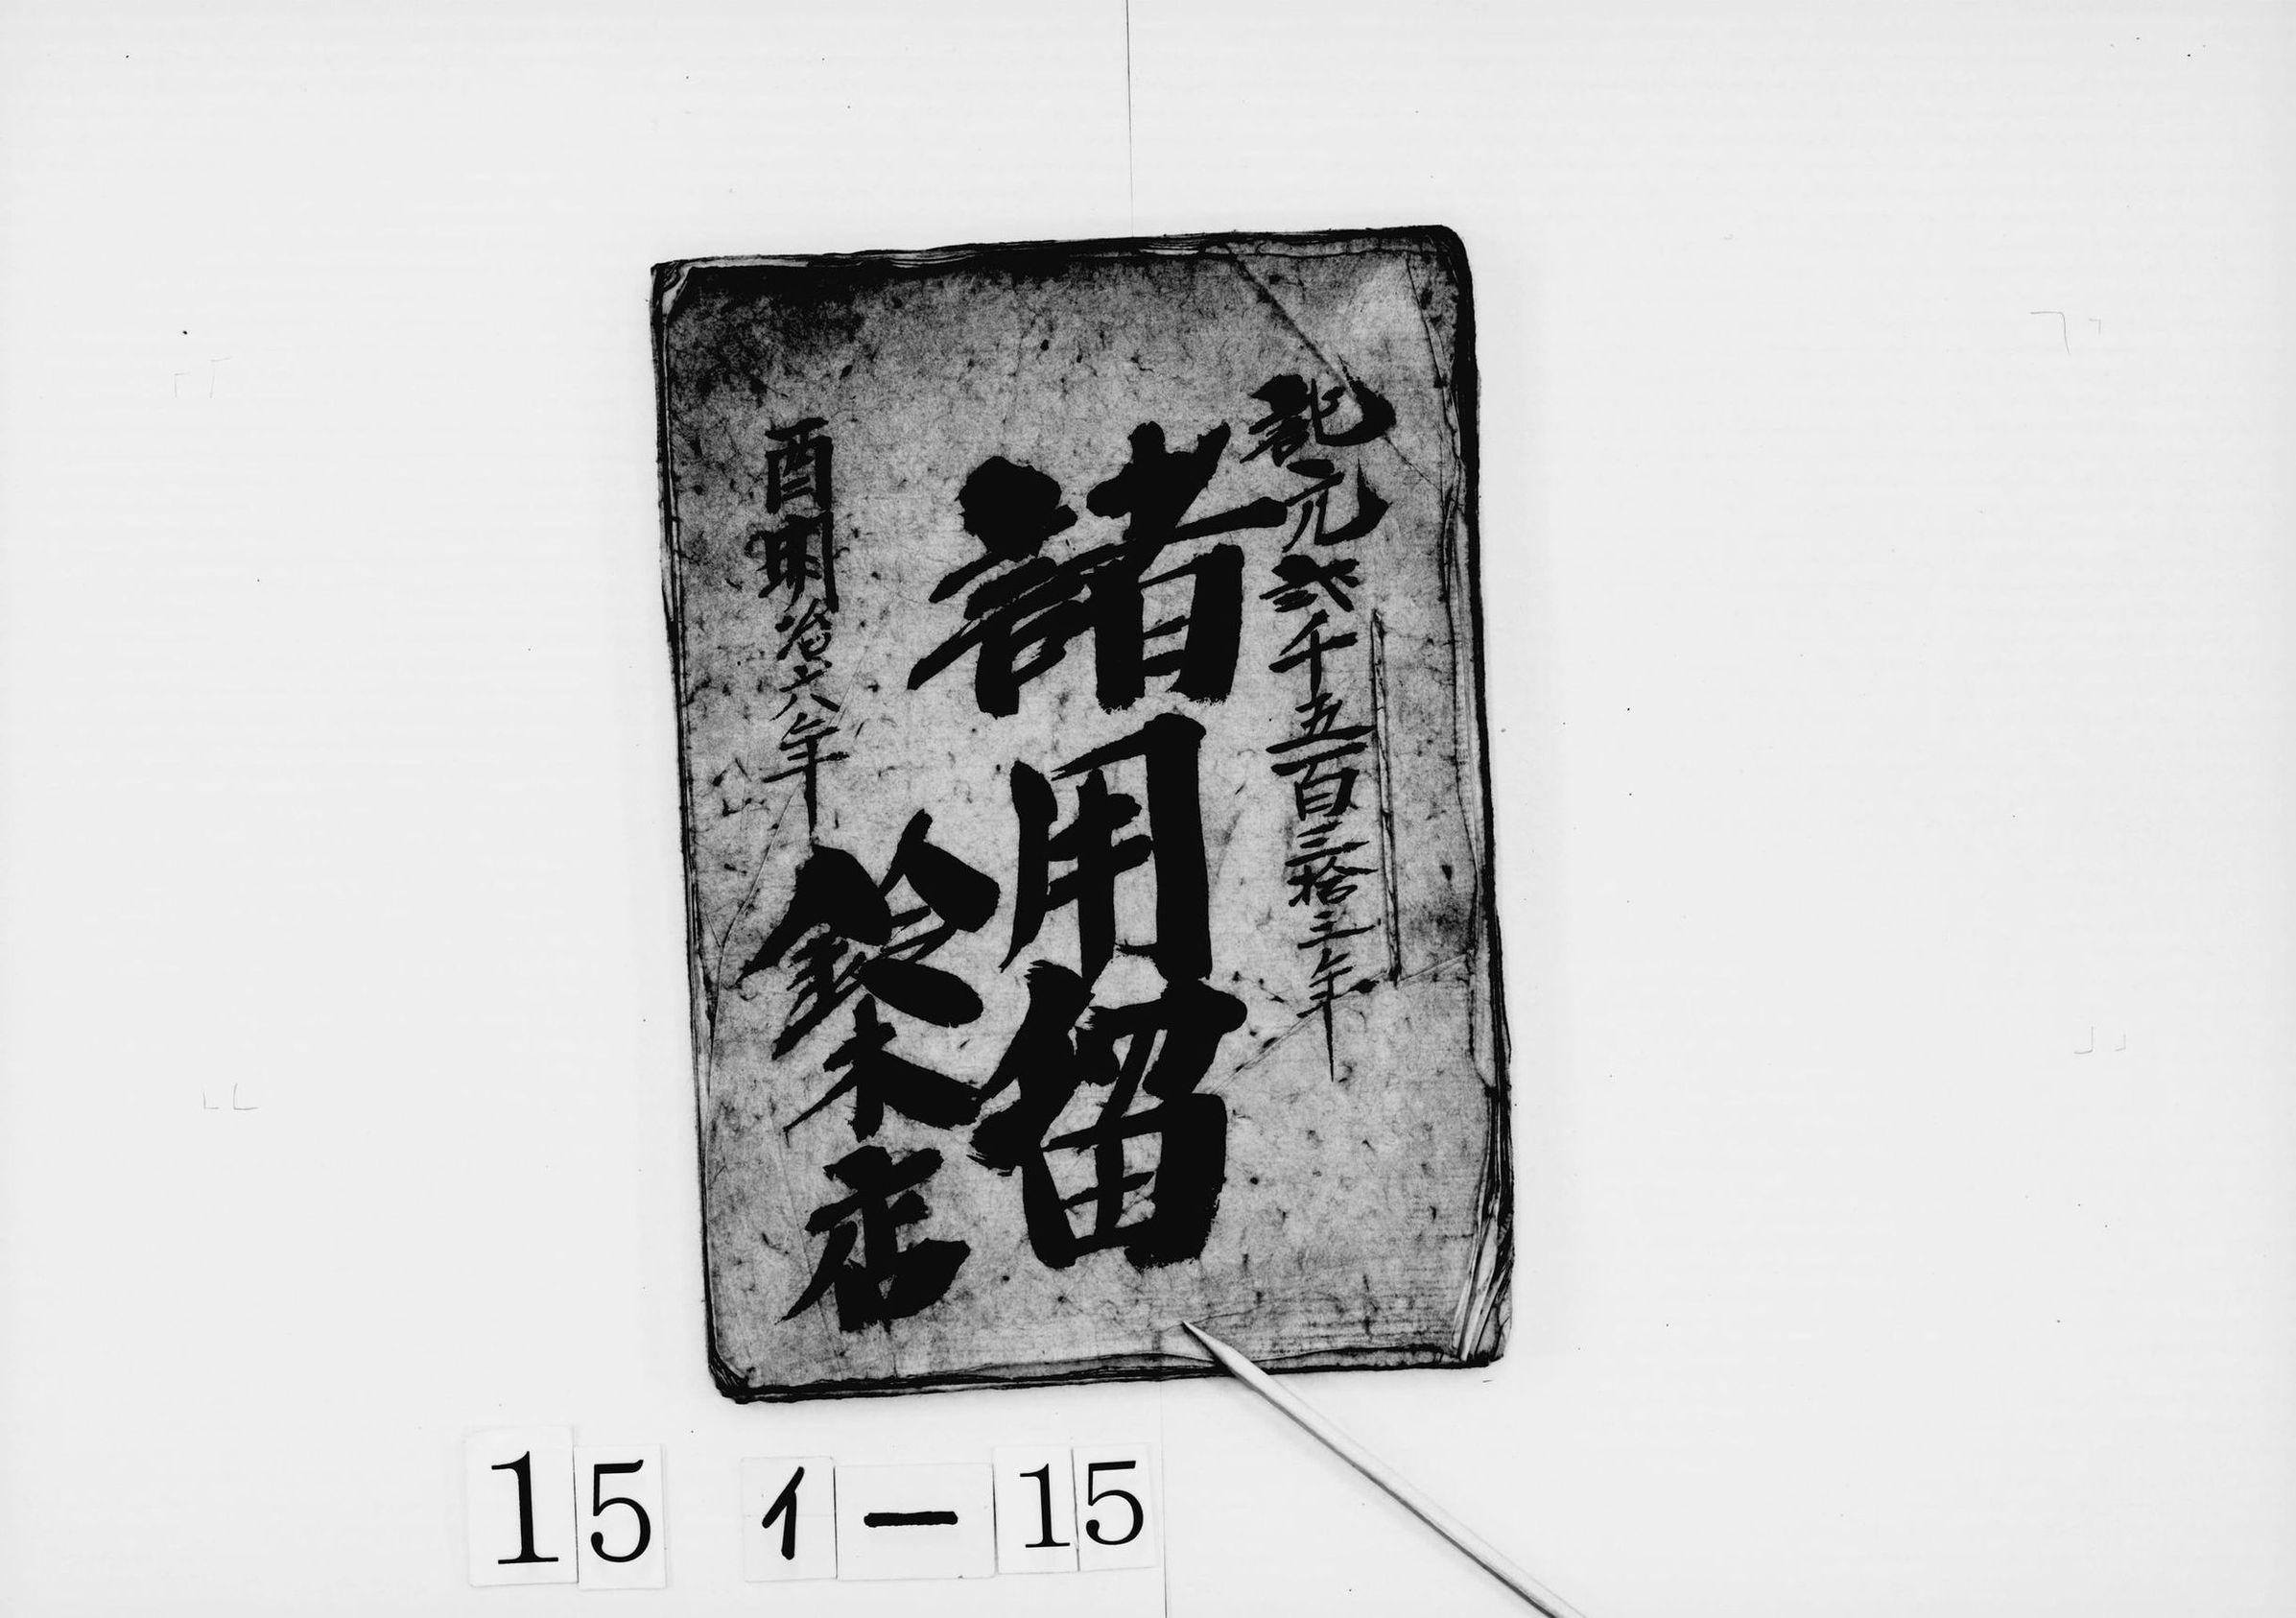 紀元弐千五百三拾三年
諸用留
酉明治六年
鈴木店
15 イー15